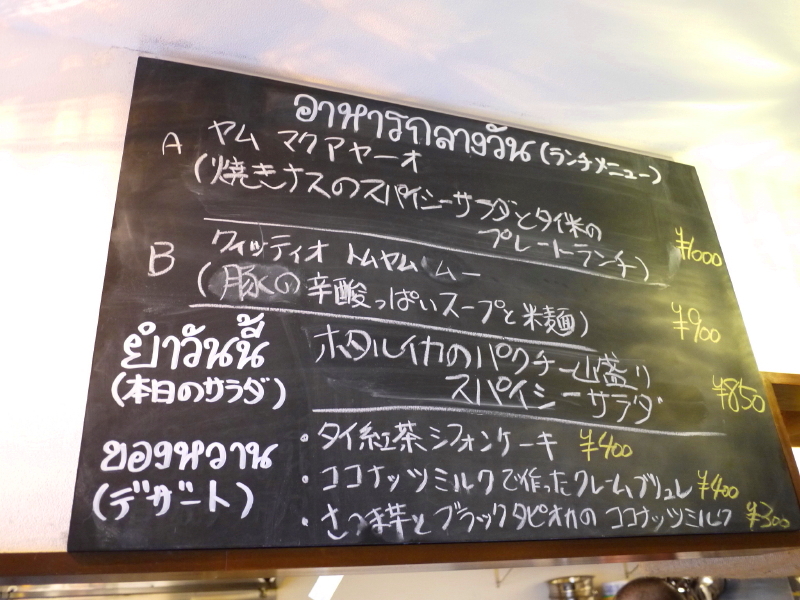 อาหารกลางวัน(ランチメニュー)
A ヤム マクアヤーオ
(焼きナスのスパイシーサラダとタイ米の
プレートランチ) ¥1000
B クィッティオ トムヤム ムー
(豚の辛酸っぱいスープと米麺) ¥900
ยำวันนี้
(本日のサラダ)
ホタルイカのパクチー山盛り
スパイシーサラダ ¥850
ของหวาน
(デザート)
・タイ紅茶シフォンケーキ ¥400
・ココナッツミルクで作ったクレームブリュレ ¥400
・さつま芋とブラックタピオカのココナッツミルク ¥300